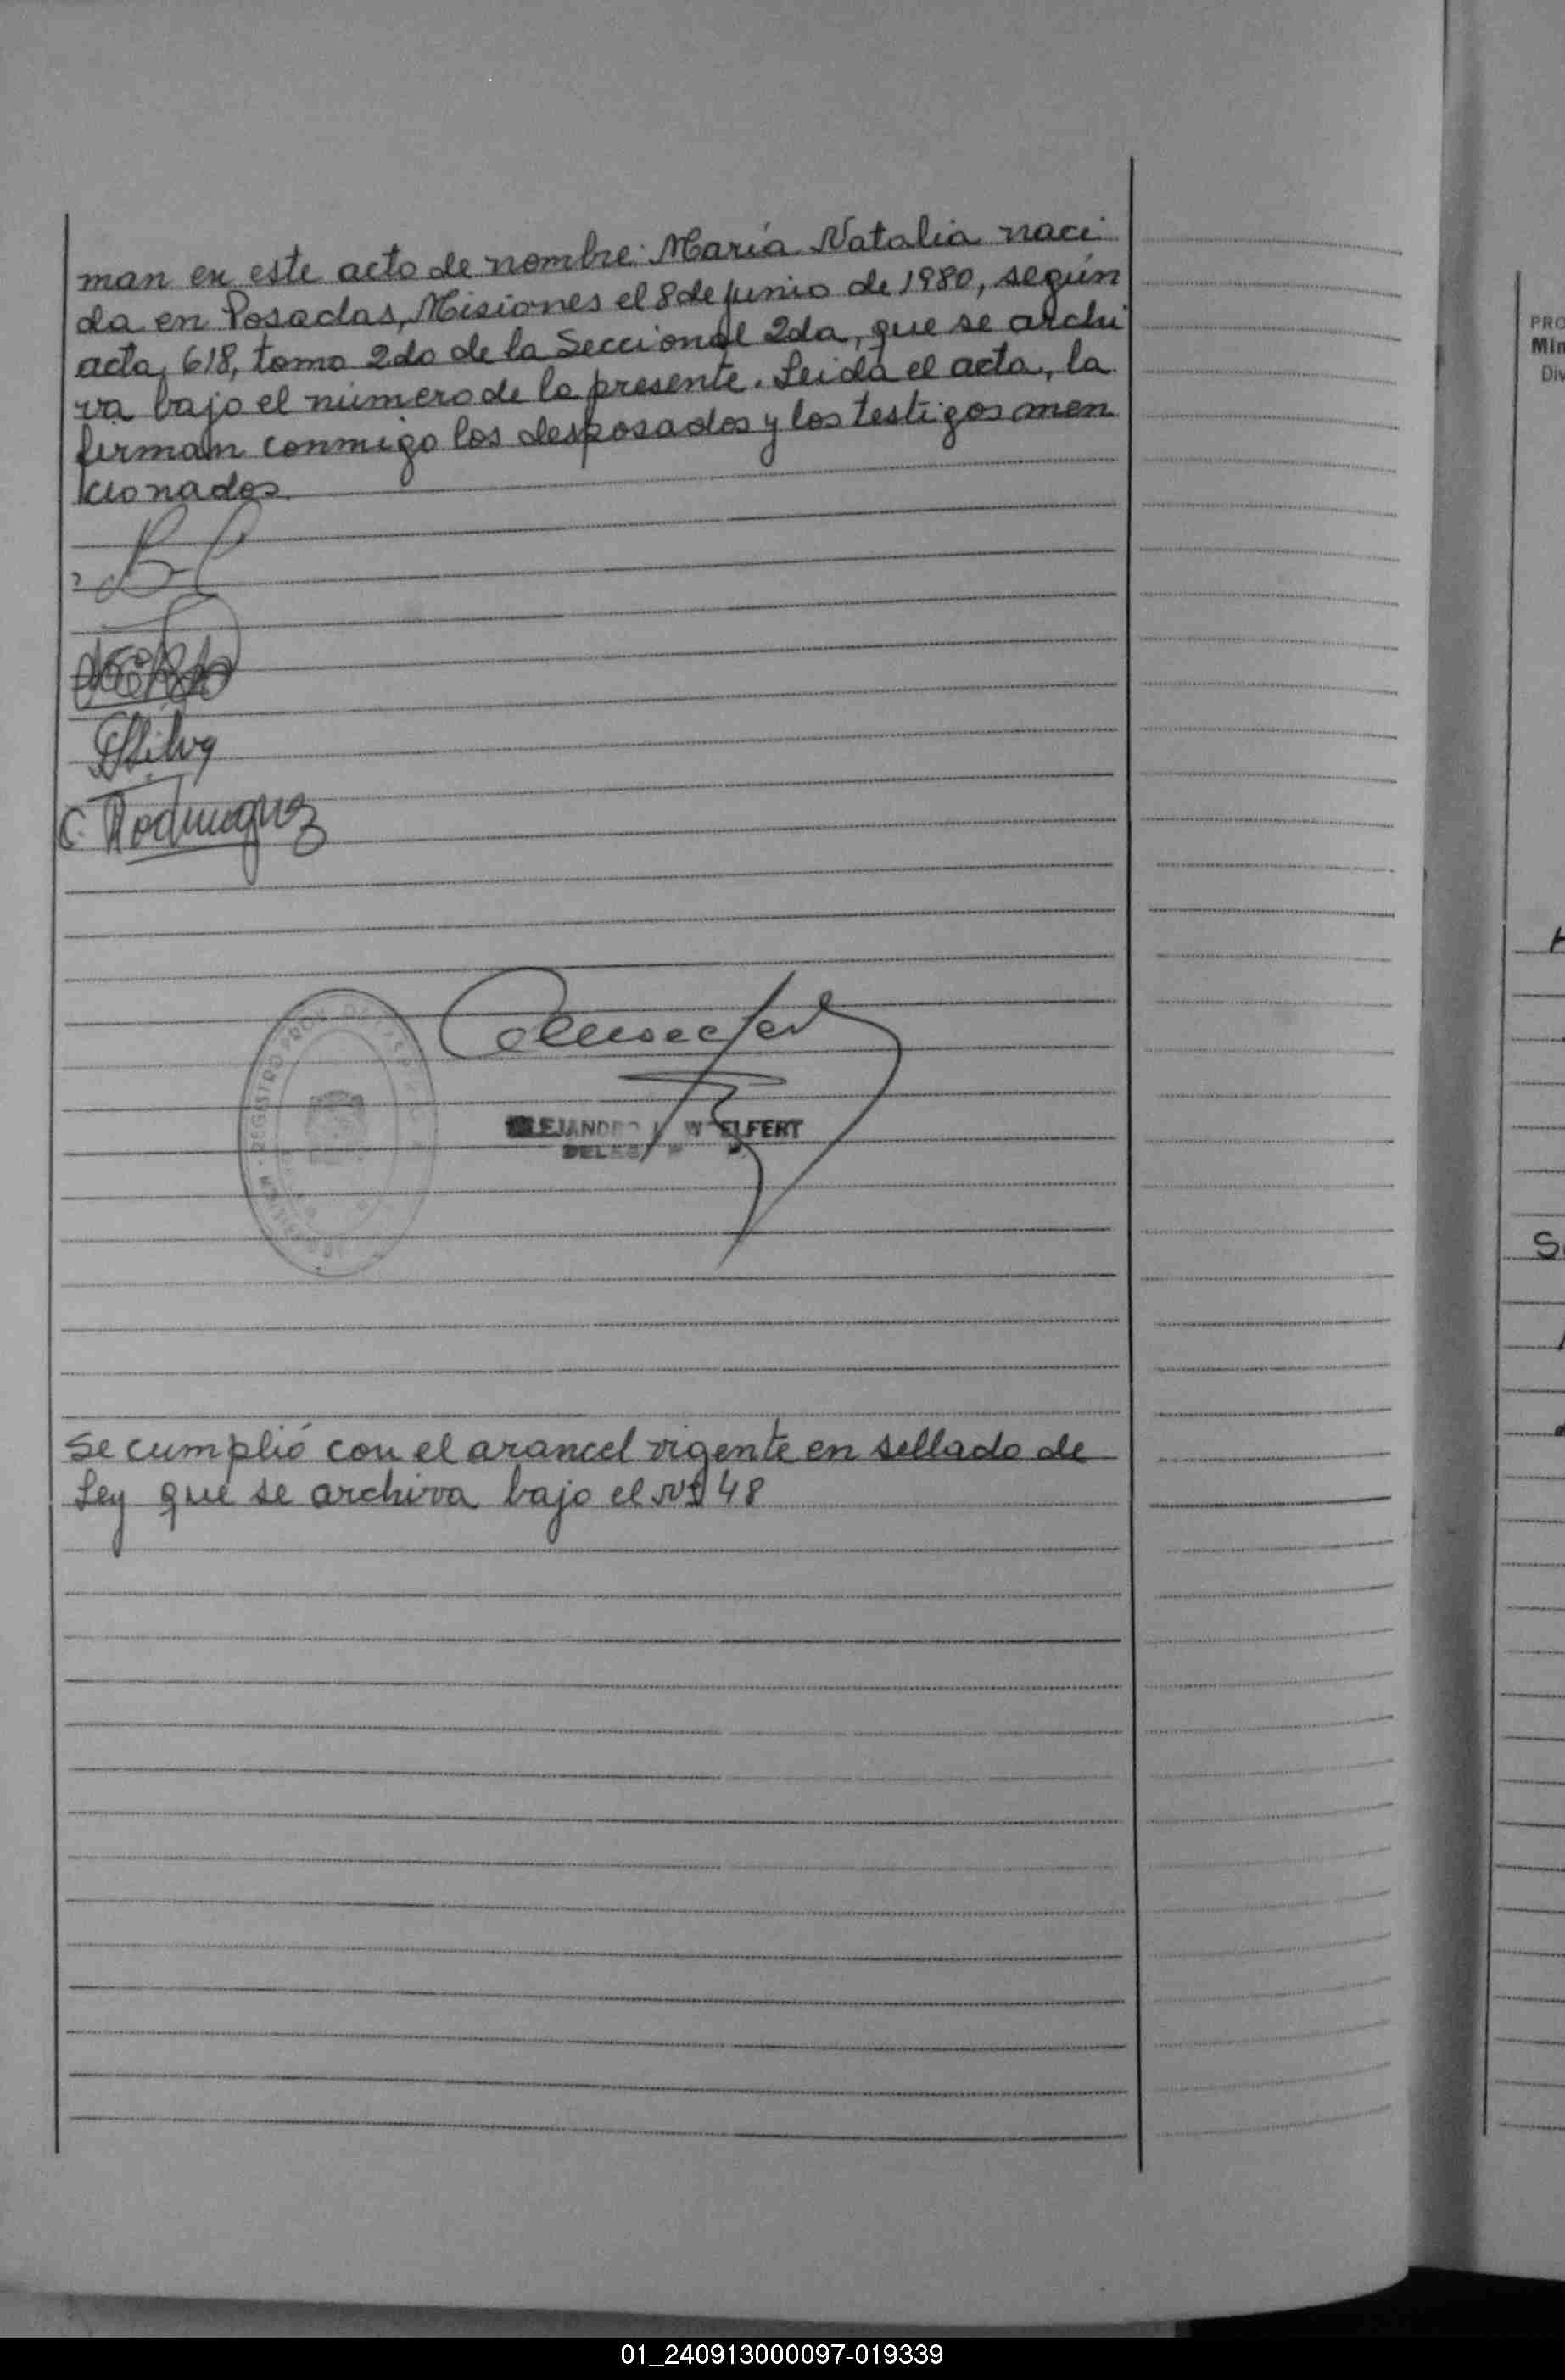 man en este acto de nombre: María Natalia naci
da en Posadas, Misiones el 8 de junio de 1980, según
acta, 618, tomo 2do de la Seccional 2da, que se archi
va bajo el número de la presente. Leida el acta, la
firman conmigo los desposados y los testigos men
cionados.
Silva
C. Rodriguez
REGISTRO PROV. DE
ALEJANDRO WELFERT
Se cumplió con el arancel vigente en sellado de
Ley que se archiva bajo el Nº 48
PRO
Min
Div
01_240913000097-019339